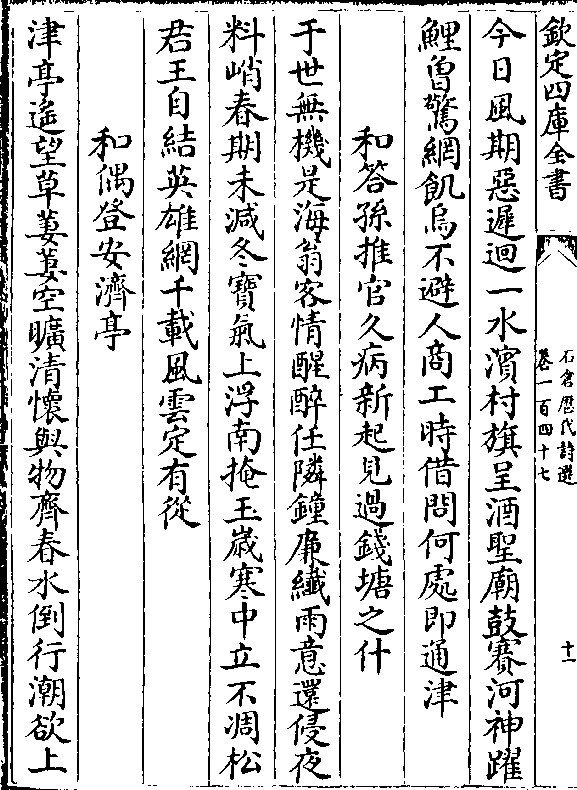 欽定四庫全書
石倉歷代詩選
卷一百四十七
十一
今日風期惡遲迴一水濱村旗呈酒聖廟鼓賽河神躍
鯉曾驚網飢烏不避人商工時借問何處即通津
和答孫推官久病新起見過錢塘之什
于世無機是海翁客情醒醉任隣鐘廉纖雨意還侵夜
料峭春期未減冬寶氣上浮南掩玉嵗寒中立不凋松
君王自結英雄網千載風雲定有從
和偶登安濟亭
津亭遙望草萋萋空曠清懷與物齊春水倒行潮欲上